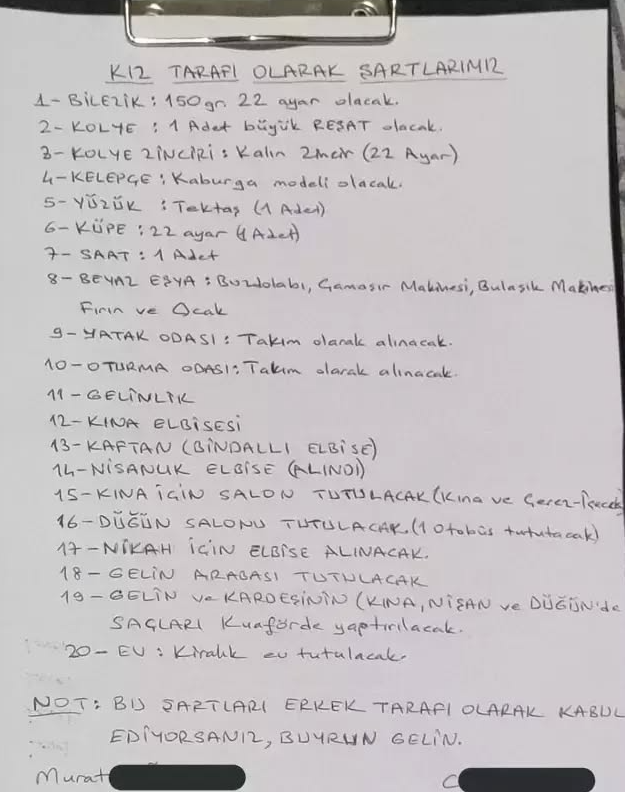 KIZ TARAFI OLARAK ŞARTLARIMIZ
1- BİLEZİK : 150 gr. 22 ayar olacak.
2- KOLYE : 1 Adet büyük REŞAT olacak.
3- KOLYE ZİNCİRİ : Kalın Zincir (22 Ayar)
4- KELEPÇE : Kaburga modeli olacak.
5- YÜZÜK : Tektaş (1 Adet)
6- KÜPE : 22 ayar (1 Adet)
7- SAAT : 1 Adet
8- BEYAZ EŞYA : Buzdolabı, Çamaşır Makinesi, Bulaşık Makinesi
Fırın ve Ocak
9- YATAK ODASI : Takım olarak alınacak.
10- OTURMA ODASI : Takım olarak alınacak.
11- GELİNLİK
12- KINA ELBİSESİ
13- KAFTAN (BİNDALLI ELBİSE)
14- NİŞANLIK ELBİSE (ALINDI)
15- KINA İÇİN SALON TUTULACAK (Kına ve Çerez-İçecek
16- DÜĞÜN SALONU TUTULACAK. (1 Otobüs tutulacak)
17- NİKAH İÇİN ELBİSE ALINACAK.
18- GELİN ARABASI TUTULACAK
19- GELİN ve KARDEŞİNİN (KINA, NİŞAN ve DÜĞÜN'de
SAÇLARI Kuaförde yaptırılacak.
20- EV : Kiralık ev tutulacak.
NOT : BU ŞARTLARI ERKEK TARAFI OLARAK KABUL
EDİYORSANIZ, BUYRUN GELİN.
Murat